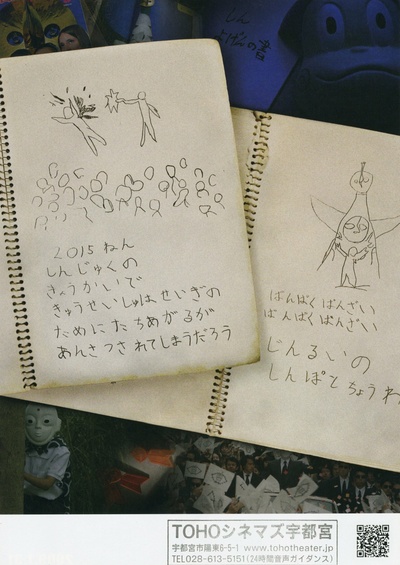 しん
よげんの書
2015ねん
しんじゅくの
きょうかいで
きゅうせいしゅはせいぎの
ためにたちあがるが
あんさつされてしまうだろう
ばんぱくばんざい
ばんぱくばんざい
じんるいの
しんぽとちょうわ
TOHOシネマズ宇都宮
宇都宮市陽東6-5-1 www.tohotheater.jp
TEL028-613-5151(24時間音声ガイダンス)